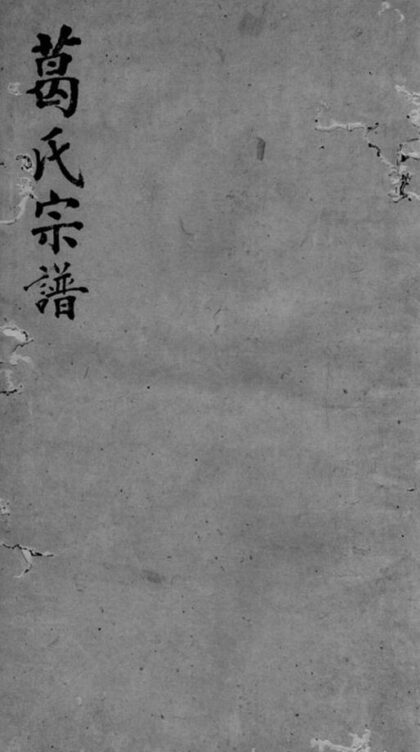 葛氏宗譜